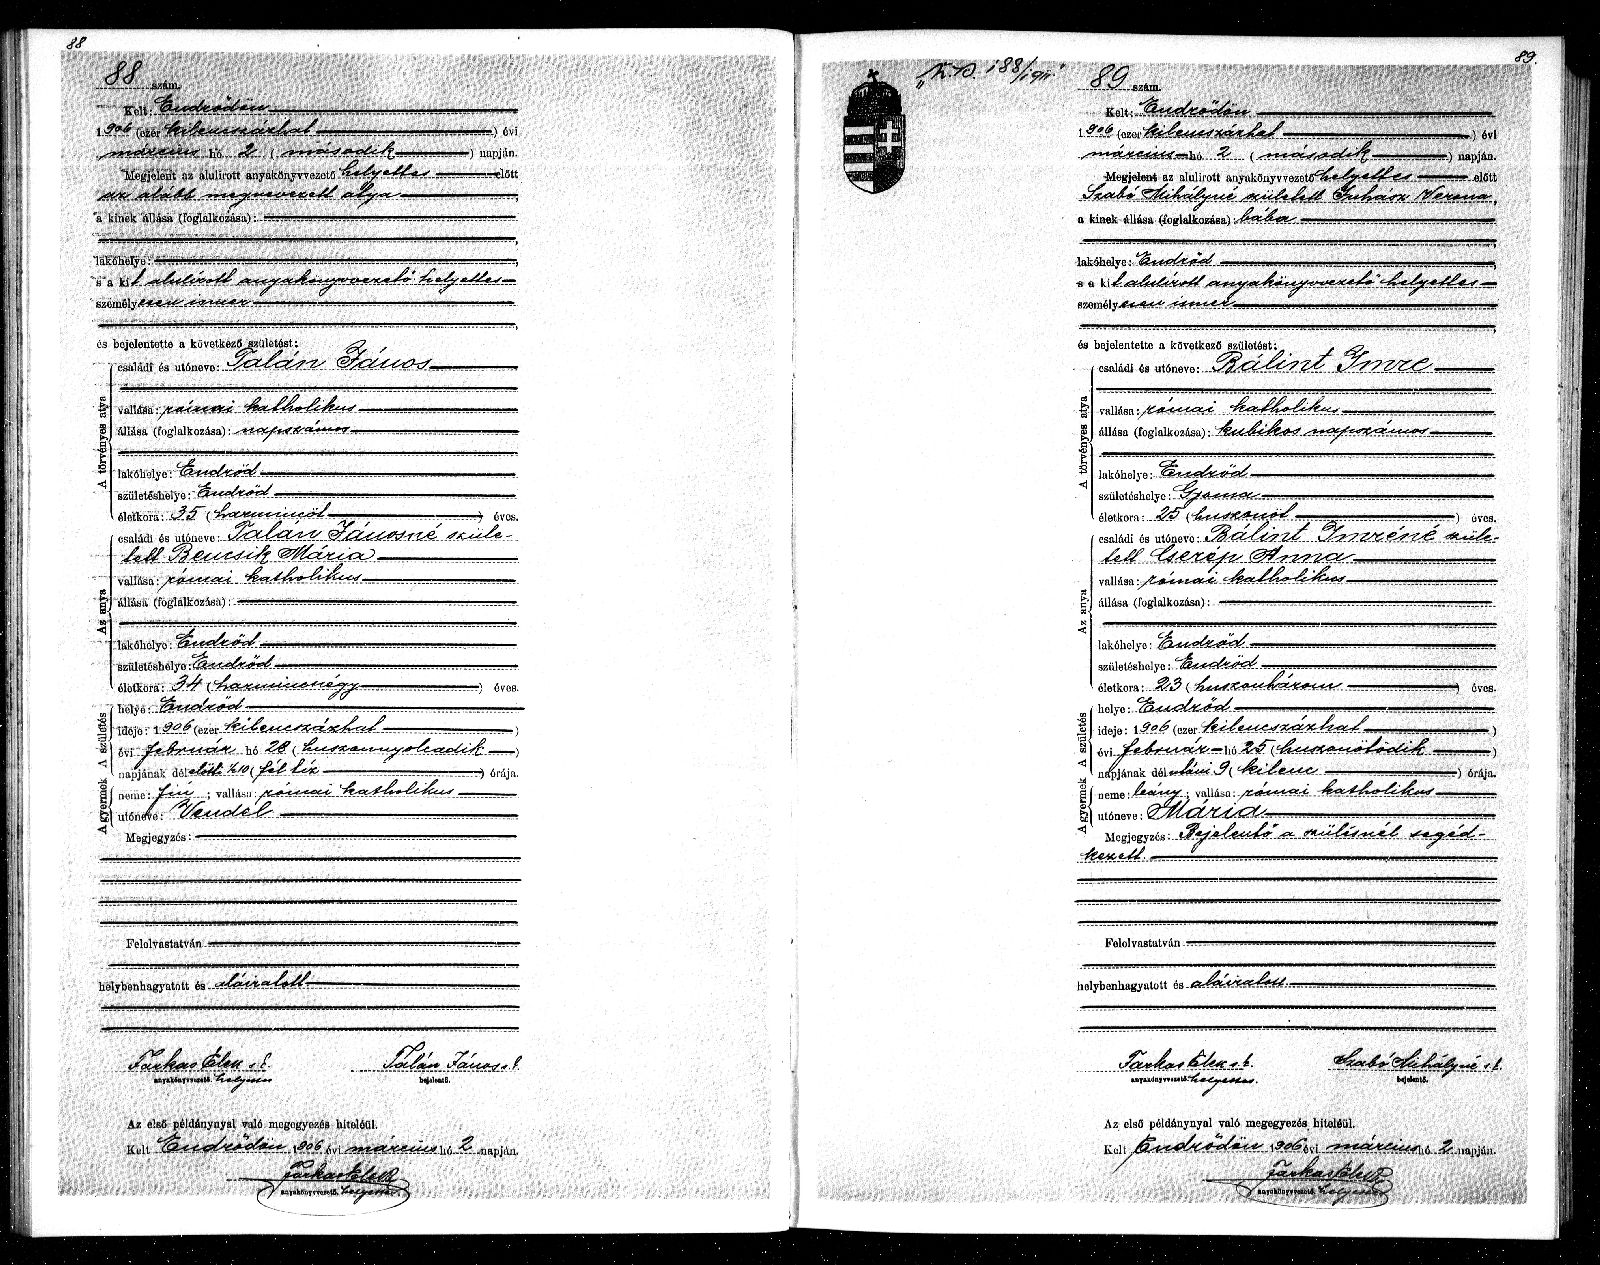 88
88 szám.
Kelt: Endrődön
1906 (ezer kilencszázhat) évi
március hó 2 (második) napján.
Megjelent az alulirott anyakönyvvezető helyettes előtt
az alább megnevezett atya
a kinek állása (foglalkozása):
lakóhelye:
s a kit alulirott anyakönyvvezető helyettes
személyesen ismer
és bejelentette a következő születést:
A törvényes atya
családi és utóneve: Talán János
vallása: római katholikus
állása (foglalkozása): napszámos
lakóhelye: Endrőd
születéshelye: Endrőd
életkora: 35 (harmincöt) éves.
Az anya
családi és utóneve: Talán Jánosné szüle-
tett Bencsik Mária
vallása: római katholikus
állása (foglalkozása):
lakóhelye: Endrőd
születéshelye: Endrőd
életkora: 34 (harmincnégy) éves.
A születés
helye: Endrőd
ideje: 1906 (ezer kilencszázhat)
évi február hó 28 (huszonnyolcadik)
napjának délelőtti ½10 (fél tíz) órája.
A gyermek
neme: fiu; vallása: római katholikus
utóneve: Vendel
Megjegyzés:
Felolvastatván
helybenhagyatott és aláiratott
Farkas Elek s. k. Talán János s. k.
anyakönyvvezető helyettes bejelentő.
Az első példánynyal való megegyezés hiteléül.
Kelt Endrődön 1906 évi március hó 2 napján.
Farkas Elek
anyakönyvvezető helyettes
89.
188/1911
89 szám.
Kelt: Endrődön
1906 (ezer kilencszázhat) évi
március hó 2 (második) napján.
Megjelent az alulirott anyakönyvvezető helyettes előtt
Szabó Mihályné született Juhász Verona,
a kinek állása (foglalkozása): bába
lakóhelye: Endrőd
s a kit alulirott anyakönyvvezető helyettes
személyesen ismer
és bejelentette a következő születést:
A törvényes atya
családi és utóneve: Bálint Imre
vallása: római katholikus
állása (foglalkozása): kubikos napszámos
lakóhelye: Endrőd
születéshelye: Gyoma
életkora: 25 (huszonöt) éves.
Az anya
családi és utóneve: Bálint Imréné szüle-
tett Cserép Anna
vallása: római katholikus
állása (foglalkozása):
lakóhelye: Endrőd
születéshelye: Endrőd
életkora: 23 (huszonhárom) éves.
A születés
helye: Endrőd
ideje: 1906 (ezer kilencszázhat)
évi február hó 25 (huszonötödik)
napjának délutáni 9 (kilenc) órája.
A gyermek
neme: leány; vallása: római katholikus
utóneve: Mária
Megjegyzés: Bejelentő a szülésnél segéd-
kezett.
Felolvastatván
helybenhagyatott és aláiratott
Farkas Elek s. k. Szabó Mihályné s. k.
anyakönyvvezető helyettes bejelentő.
Az első példánynyal való megegyezés hiteléül.
Kelt Endrődön 1906 évi március hó 2 napján.
Farkas Elek
anyakönyvvezető helyettes